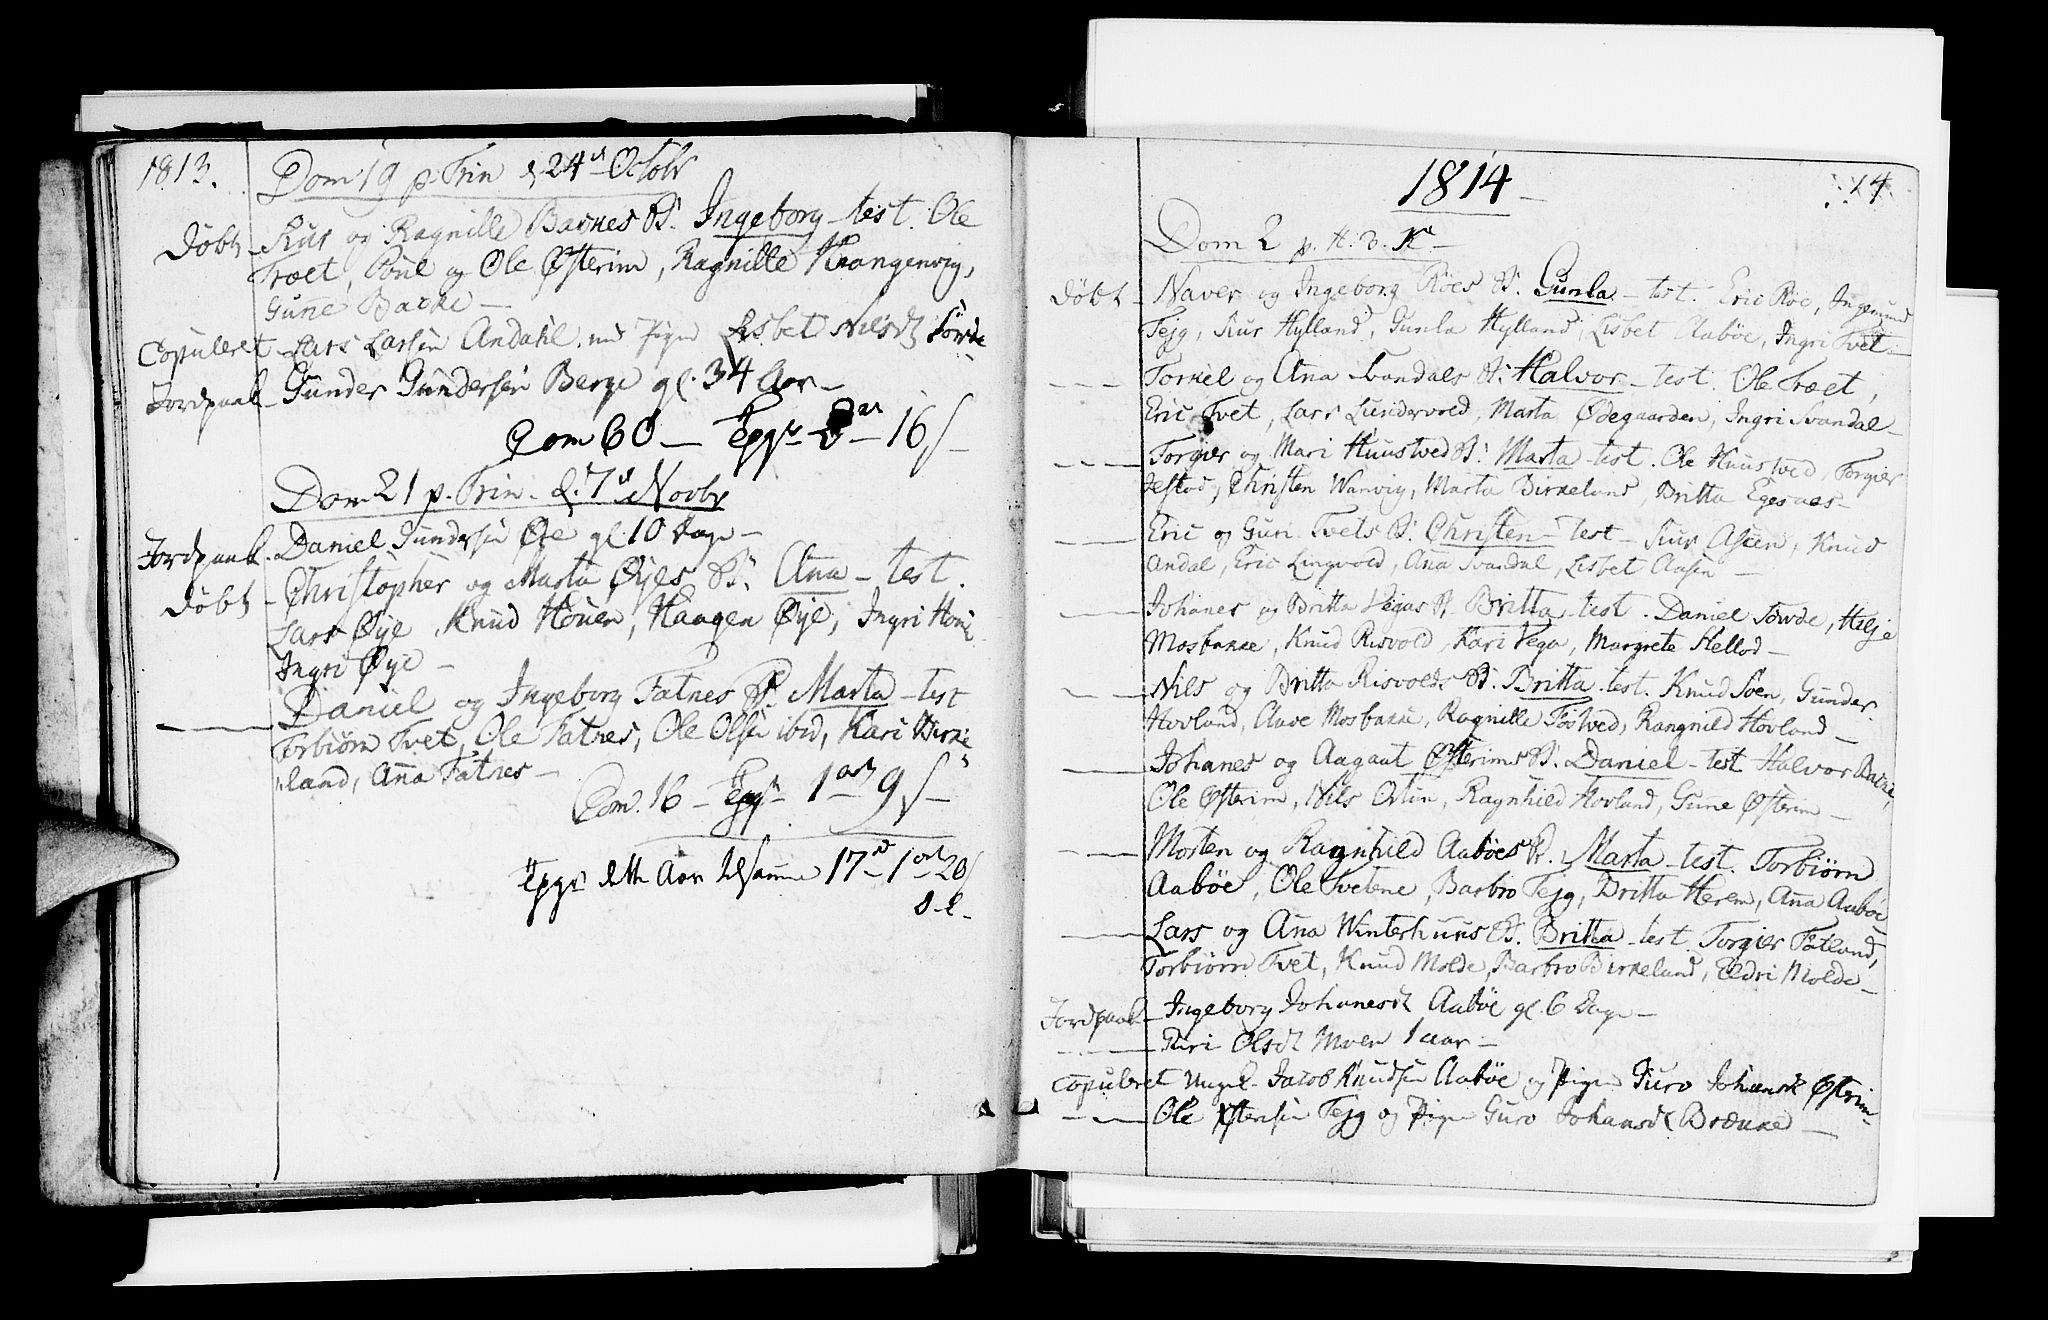 1813.
Dom 19 p. Trin d 24d Octobr
Döbt - Siur og Ragnille Barkes B. Ingeborg - test. Ole
Træet, Poul og Ole Østerim, Ragnille Krangenvig,
Gunne Barke -
Copuleret - Lars Larsen Andahl med Pigen Lisbet Nilsdt Sövde
Jordpaak. - Gunder Gundersen Berge gl. 34 Aar -
Com 60 - 16 s -
Dom 21 p. Trin. d. 7d Novbr
Jordpaak. Daniel Gundersen Øie gl 10 Dage -
Döbt - Christopher og Marta Øyes B. Ana - test.
Lars Øye, Knud Houen, Haagen Øye, Ingri
Ingri Øye -
Daniel og Ingeborg Fatnes B. Marta - test
Torbiörn Tvet, Ole Fatnes, Ole Olsen ibid, Kari Birke
land, Ana Fatnes -
Com. 16 - 1 ort 9 s -
dette Aar tilsamen 17 - 1 ort 20 s
S. E.
1814 -
14
Dom 2 p. H. 3. K -
Döbt - Naver og Ingeborg Röes B. Gunla - test. Eric Röe, Ingemund
Tejg, Siur Hylland, Gunla Hylland, Lisbet Aaböe, Ingri Tvet -
- - - Torkel og Ana Svandals B. Halvor - test. Ole Træet,
Eric Tvet, Lars Lundervold, Marta Ødegaarden, Ingri Svandal -
- - - Torgier og Mari Huustved B. Marta - test. Ole Huustved, Torgier
Jestad, Christen Wanvig, Marta Birkeland, Britta Egesnes -
Eric og Guri Tvets B. Christen - test - Siur Aseen, Knud
Andal, Eric Lingvold, Ana Svandal, Lisbet Aasen -
Johanes og Britta Vegas B. Britta - test. Daniel Sövde, Helje
Mosbakke, Knud Risvold, Kari Vega, Margrete Hellod -
Nils og Britta Risvolds B. Britta - test. Knud Soen, Gunder
Hovland, Aave Mosbakke, Ragnille Töstved, Rangnild Hovland -
Johanes og Aagaat Østerims B. Daniel - test Halvor Barke,
Ole Østerim, Nils Ortin, Ragnhild Hovland, Gunne Østerim -
Morten og Ragnhild Aaböes B. Marta - test. Torbiörn
Aaböe, Ole Tvetene, Barbro Tejg, Britta Herem, Ana Aaböe
Lars og Ana Winterhuus B. Britta - test. Torgier Fatland,
Torbiörn Tvet, Knud Molde, Barbro Birkeland, Eldri Molde -
Jordpaak. - Ingeborg Johanesdt Aaböe gl. 6 Dage -
Turi Olsdt Moen 1 aar -
Copuleret Ungk. Jacob Knudsen Aaböe og Pigen Guro Johansdt Østerim -
Ole Tejg og Pigen Guro Johansdt Brække -